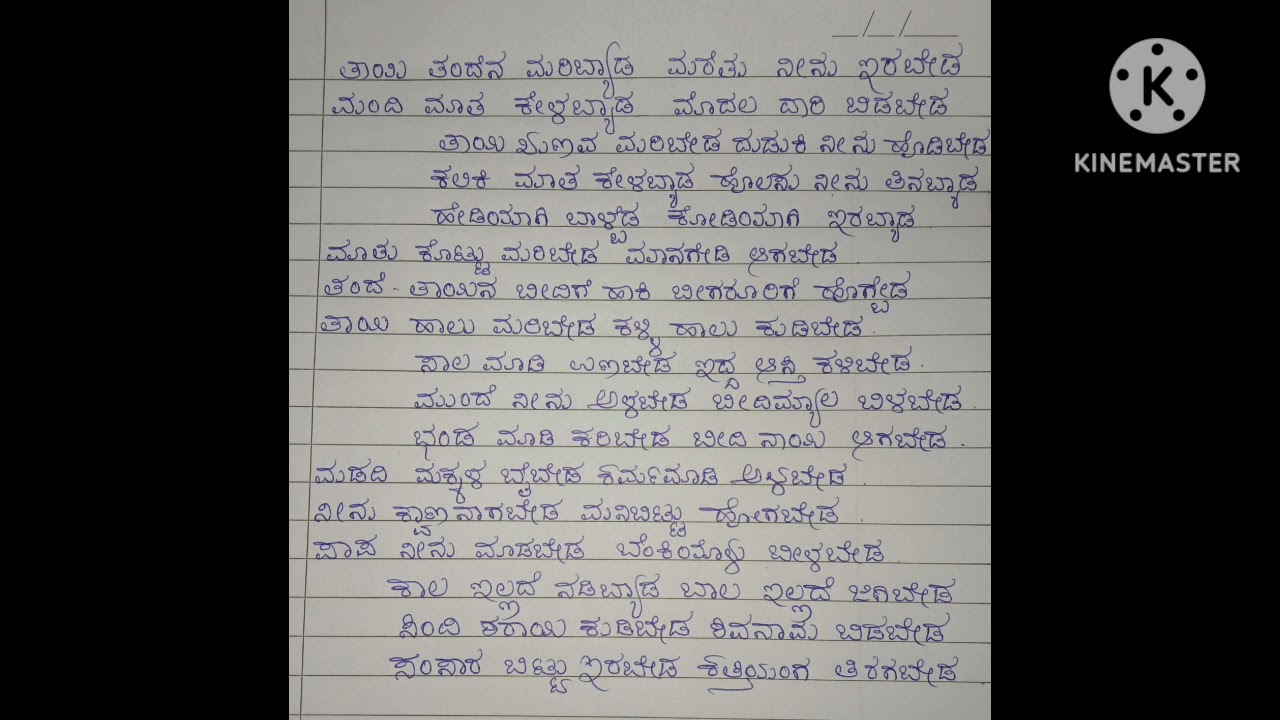 __/__/____
ತಾಯಿ ತಂದೆನ ಮರಿಬ್ಯಾಡ ಮರೆತು ನೀನು ಇರಬೇಡ
ಮಂದಿ ಮಾತ ಕೇಳಬ್ಯಾಡ ಮೊದಲ ದಾರಿ ಬಿಡಬೇಡ
ತಾಯಿ ಋಣವ ಮರಿಬೇಡ ದುಡುಕಿ ನೀನು ಹೊಡಿಬೇಡ
ಕಲಿಕಿ ಮಾತ ಕೇಳಬ್ಯಾಡ ಹೊಲಸು ನೀನು ತಿನಬ್ಯಾಡ
ಹೇಡಿಯಾಗಿ ಬಾಳ್ಬೆಡ ಕೋಡಿಯಾಗಿ ಇರಬ್ಯಾಡ
ಮಾತು ಕೊಟ್ಟು ಮರಿಬೇಡ ಮಾನಗೇಡಿ ಆಗಬೇಡ
ತಂದೆ - ತಾಯಿನ ಬೀದಿಗೆ ಹಾಕಿ ಬೀಗರೂರಿಗೆ ಹೊಗ್ಬೆಡ
ತಾಯಿ ಹಾಲು ಮರಿಬೇಡ ಕಳ್ಳಿ ಹಾಲು ಕುಡಿಬೇಡ.
ಸಾಲ ಮಾಡಿ ಉಣಬೇಡ ಇದ್ದ ಆಸ್ತಿ ಕಳಿಬೇಡ.
ಮುಂದೆ ನೀನು ಅಳ್ಳಬೇಡ ಬೀದಿಮ್ಯಾಲ ಬಿಳಬೇಡ.
ಭಂಡ ಮಾಡಿ ಕರಿಬೇಡ ಬೀದಿ ನಾಯಿ ಆಗಬೇಡ.
ಮಡದಿ ಮಕ್ಕಳ ಬೈಬೇಡ ಕರ್ಮಮಾಡಿ ಅಳ್ಬೇಡ.
ನೀನು ಕ್ವಾಣನಾಗಬೇಡ ಮನಿಬಿಟ್ಟು ಹೋಗಬೇಡ.
ಪಾಪ ನೀನು ಮಾಡಬೇಡ ಬೆಂಕಿಯೊಳು ಬೀಳ್ಳಬೇಡ.
ಕಾಲ ಇಲ್ಲದೆ ನಡಿಬ್ಯಾಡ ಬಾಲ ಇಲ್ಲದೆ ಜಿಗಿಬೇಡ
ಸಿಂದಿ ಶರಾಯಿ ಕುಡಿಬೇಡ ಶಿವನಾಮ ಬಿಡಬೇಡ
ಸಂಸಾರ ಬಿಟ್ಟು ಇರಬೇಡ ಕತ್ತಿಯಂಗ ತಿರಗಬೇಡ
K
KINEMASTER